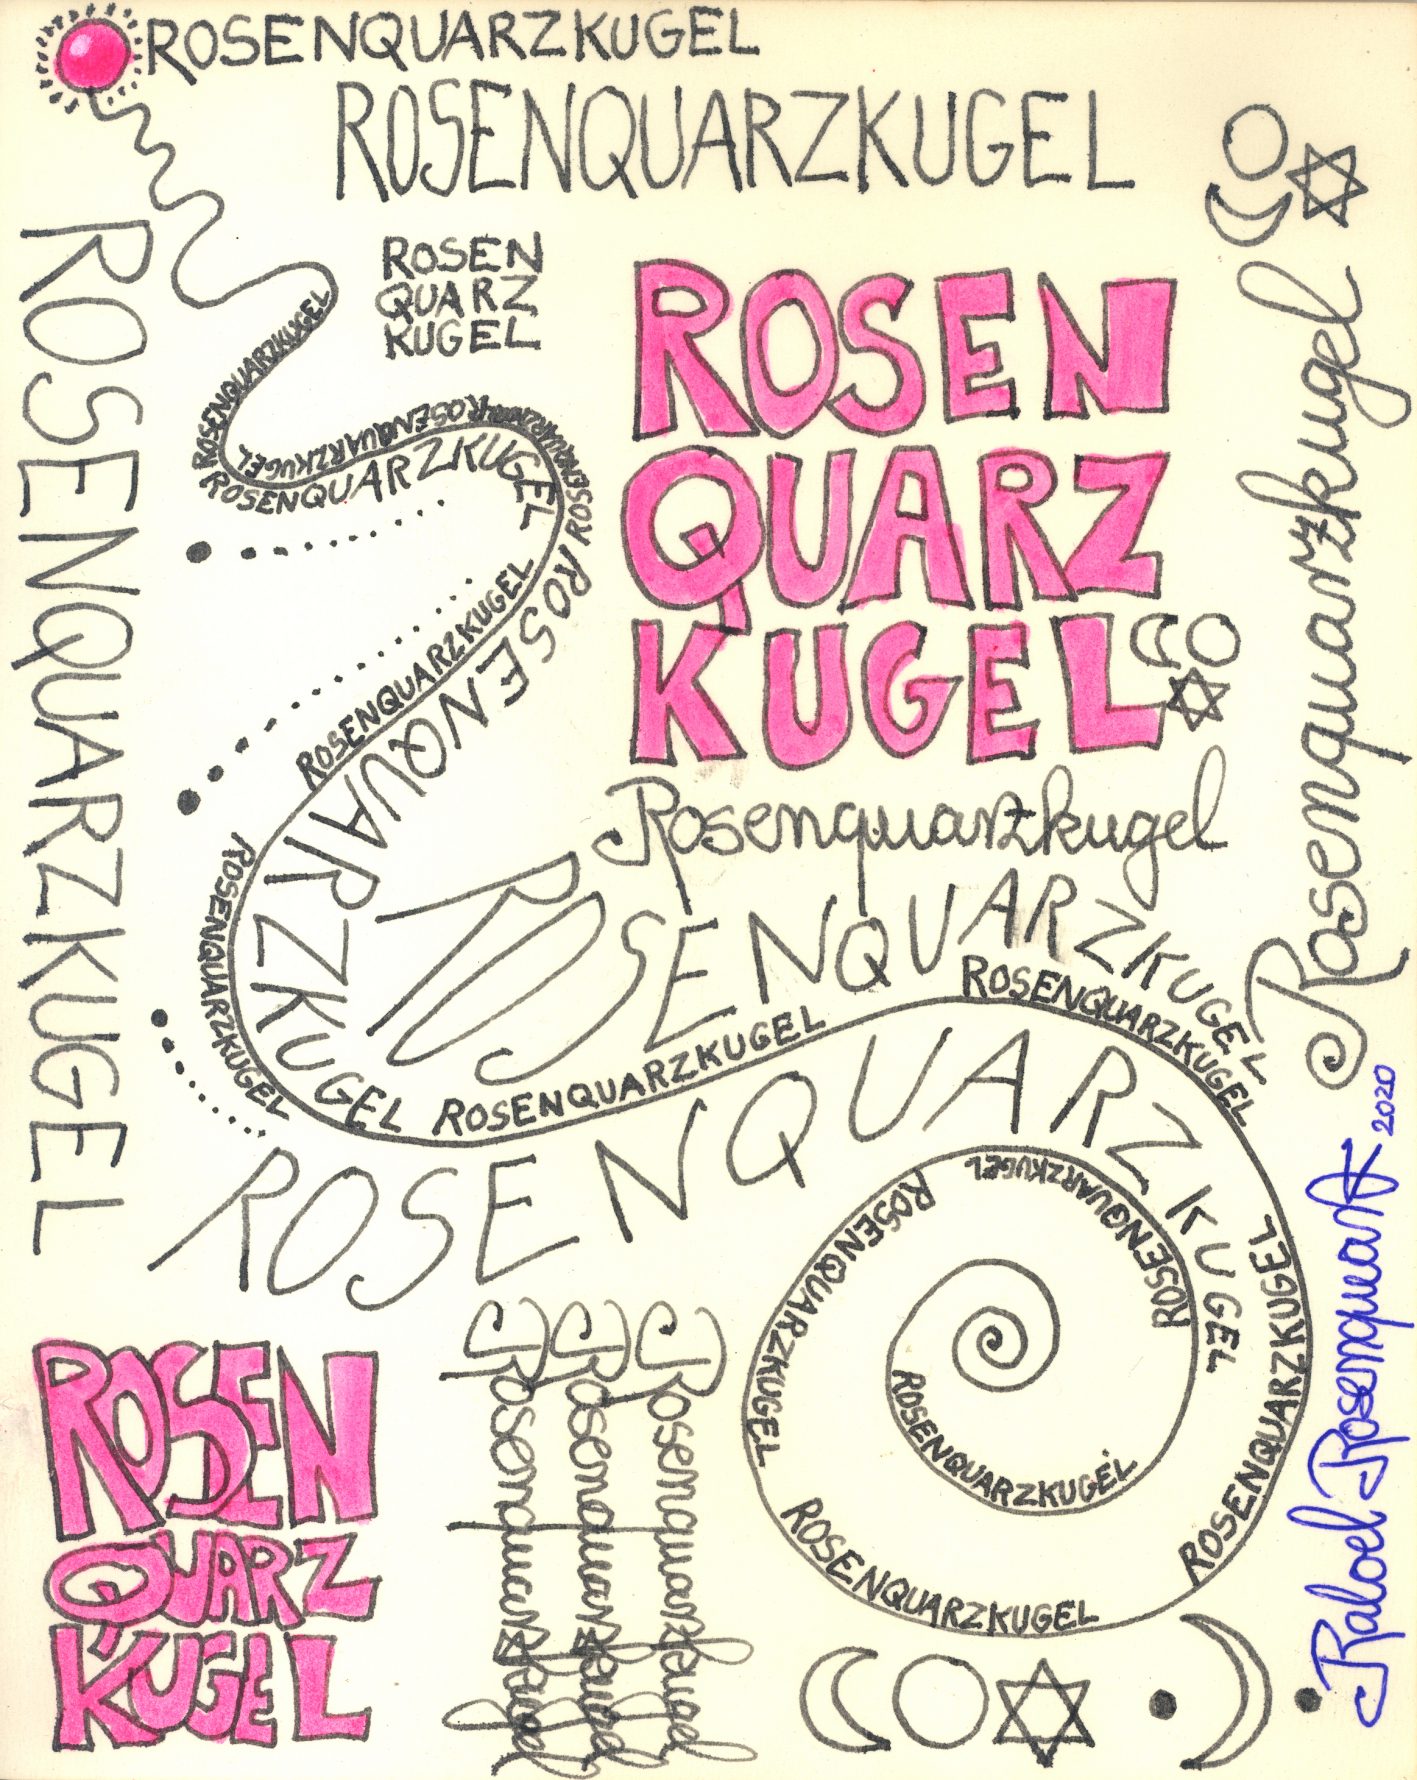 ROSENQUARZKUGEL
ROSENQUARZKUGEL
ROSENQUARZKUGEL
ROSEN
QUARZ
KUGEL
ROSEN
QUARZ
KUGEL
Rosenquarzkugel
ROSENQUARZKUGEL
ROSENQUARZKUGEL
ROSENQUARZKUGEL
ROSENQUARZKUGEL
ROSENQUARZKUGEL
ROSENQUARZKUGEL
ROSENQUARZKUGEL
Rosenquarzkugel
ROSENQUARZKUGEL
ROSENQUARZKUGEL
ROSENQUARZKUGEL
ROSENQUARZKUGEL
ROSENQUARZKUGEL
ROSENQUARZKUGEL
ROSENQUARZKUGEL
ROSENQUARZKUGEL
ROSENQUARZKUGEL
ROSENQUARZKUGEL
ROSEN
QUARZ
KUGEL
Rosenquarzkugel
Rosenquarzkugel
Rosenquarzkugel
2020